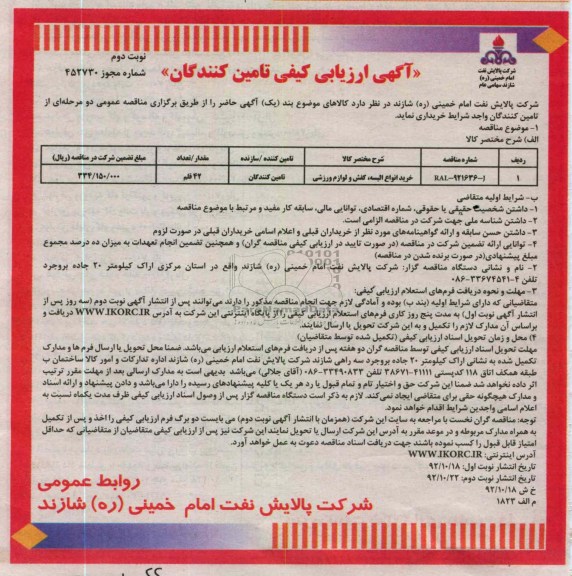 نوبت دوم
شماره مجوز ۴۵۲۷۳۰
«آگهی ارزیابی کیفی تامین کنندگان»
شرکت پالایش نفت
امام خمینی (ره)
شازند سهامی عام
شرکت پالایش نفت امام خمینی (ره) شازند در نظر دارد کالاهای موضوع بند (یک) آگهی حاضر را از طریق برگزاری مناقصه عمومی دو مرحله‌ای از
تامین کنندگان واجد شرایط خریداری نماید.
۱- موضوع مناقصه
الف) شرح مختصر کالا
ردیف شماره مناقصه شرح مختصر کالا تامین کننده /سازنده مقدار /تعداد مبلغ تضمین شرکت در مناقصه (ریال)
۱ RAL-921636-J خرید انواع البسه، کفش و لوازم ورزشی تامین کنندگان ۴۲ قلم ۳۳۴/۱۵۰/۰۰۰
ب- شرایط اولیه متقاضی
۱- داشتن شخصیت حقیقی یا حقوقی، شماره اقتصادی، توانایی مالی، سابقه کار مفید و مرتبط با موضوع مناقصه
۲- داشتن شناسه ملی جهت شرکت در مناقصه الزامی است.
۳- داشتن حسن سابقه و ارائه گواهینامه‌های مورد نظر از خریداران قبلی و اعلام اسامی خریداران قبلی در صورت لزوم
۴- توانایی ارائه تضمین شرکت در مناقصه (در صورت تایید در ارزیابی کیفی مناقصه گران) و همچنین تضمین انجام تعهدات به میزان ده درصد مجموع
مبلغ پیشنهادی(در صورت برنده شدن در مناقصه)
۲- نام و نشانی دستگاه مناقصه گزار: شرکت پالایش نفت امام خمینی (ره) شازند واقع در استان مرکزی اراک کیلومتر ۲۰ جاده بروجرد
تلفن ۴-۳۳۶۷۴۵۴۱-۰۸۶
۳-مهلت و نحوه دریافت فرم‌های استعلام ارزیابی کیفی:
متقاضیانی که دارای شرایط اولیه (بند ب) بوده و آمادگی لازم جهت انجام مناقصه مذکور را دارند می‌توانند پس از انتشار آگهی نوبت دوم (سه روز پس از
انتشار آگهی نوبت اول) به مدت پنج روز کاری فرم‌های استعلام ارزیابی کیفی را از پایگاه اینترنتی این شرکت به آدرس WWW.IKORC.IR دریافت و
براساس آن مدارک لازم را تکمیل و به این شرکت تحویل یا ارسال نمایند.
۴) محل و زمان تحویل اسناد ارزیابی کیفی (تکمیل شده توسط متقاضیان)
مهلت تحویل اسناد ارزیابی کیفی توسط مناقصه گران دو هفته پس از دریافت فرم‌های استعلام ارزیابی می‌باشد. ضمنا محل تحویل یا ارسال فرم ها و مدارک
تکمیل شده به نشانی اراک کیلومتر ۲۰ جاده بروجرد سه راهی شازند شرکت پالایش نفت امام خمینی (ره) شازند اداره تدارکات و امور کالا ساختمان ب
طبقه همکف اتاق ۱۱۸ کدپستی ۴۱۱۱۱-۳۸۶۷۱ تلفن ۳۳۴۹۰۸۳۳-۰۸۶ (آقای جلالی) می‌باشد بدیهی است به مدارک ارسالی بعد از مهلت مقرر ترتیب
اثر داده نخواهد شد ضمنا این شرکت حق و اختیار تام و تمام قبول یا رد هر یک یا کلیه پیشنهادهای رسیده را دارا می‌باشد و دادن پیشنهاد و ارائه اسناد
و مدارک هیچگونه حقی برای متقاضی ایجاد نمی‌کند. لازم به ذکر است دستگاه مناقصه گزار پس از وصول اسناد ارزیابی کیفی ظرف مدت یکماه نسبت به
اعلام اسامی واجدین شرایط اقدام خواهد نمود.
توجه: مناقصه گران نخست با مراجعه به سایت این شرکت (همزمان با انتشار آگهی نوبت دوم) می بایست دو برگ فرم ارزیابی کیفی را اخذ و پس از تکمیل
به همراه مدارک مربوطه و در موعد مقرر به آدرس این شرکت ارسال یا تحویل نمایند این شرکت نیز پس از ارزیابی کیفی متقاضیان از متقاضیانی که حداقل
امتیاز قابل قبول را کسب نموده باشند جهت دریافت اسناد مناقصه دعوت به عمل خواهد آورد.
آدرس اینترنتی: WWW.IKORC.IR
تاریخ انتشار نوبت اول: ۹۲/۱۰/۱۸
تاریخ انتشار نوبت دوم: ۹۲/۱۰/۲۲
خ ش ۹۲/۱۰/۱۸
م الف ۱۸۲۳
روابط عمومی
شرکت پالایش نفت امام خمینی (ره) شازند